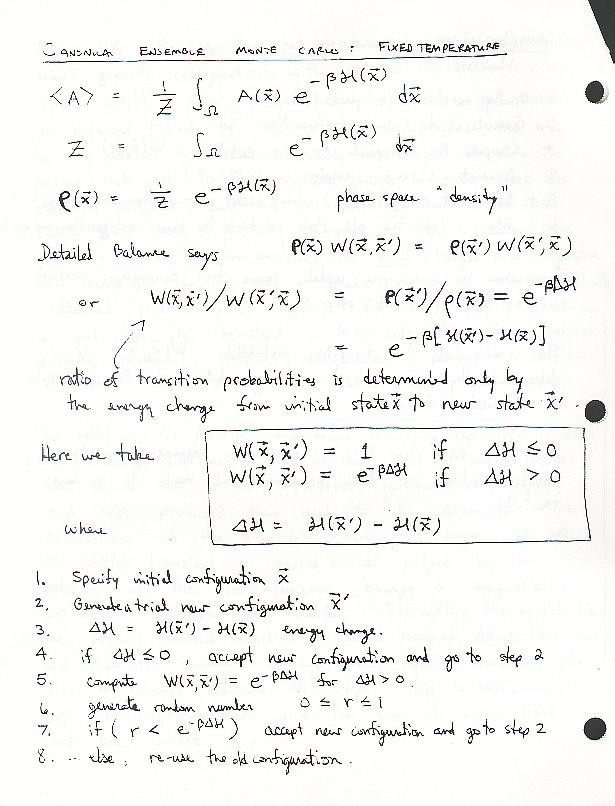 CANONICAL ENSEMBLE MONTE CARLO : FIXED TEMPERATURE
<A> = 1/Z ∫_Ω A(x⃗) e^{-βℋ(x⃗)} dx⃗
Z = ∫_Ω e^{-βℋ(x⃗)} dx⃗
ρ(x⃗) = 1/Z e^{-βℋ(x⃗)} phase space "density"
Detailed Balance says ρ(x⃗) W(x⃗,x⃗′) = ρ(x⃗′) W(x⃗′,x⃗)
or W(x⃗,x⃗′)/W(x⃗′,x⃗) = ρ(x⃗′)/ρ(x⃗) = e^{-βΔℋ}
= e^{-β[ℋ(x⃗′)-ℋ(x⃗)]}
ratio of transition probabilities is determined only by
the energy change from initial state x⃗ to new state x⃗′.
Here we take W(x⃗,x⃗′) = 1 if Δℋ ≤ 0
W(x⃗,x⃗′) = e^{-βΔℋ} if Δℋ > 0
where Δℋ = ℋ(x⃗′) - ℋ(x⃗)
1. Specify initial configuration x⃗
2. Generate a trial new configuration x⃗′
3. Δℋ = ℋ(x⃗′) - ℋ(x⃗) energy change.
4. if Δℋ ≤ 0, accept new configuration and go to step 2
5. compute W(x⃗,x⃗′) = e^{-βΔℋ} for Δℋ > 0.
6. generate random number 0 ≤ r ≤ 1
7. if ( r < e^{-βΔℋ} ) accept new configuration and go to step 2
8. .. else, re-use the old configuration.